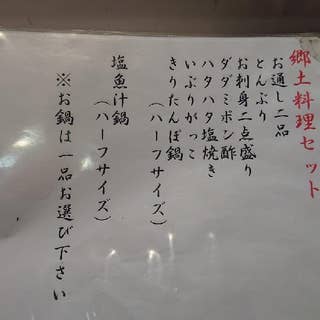 郷土料理セット
お通し二品
とんぶり
お刺身二点盛り
ダダミポン酢
ハタハタ塩焼き
いぶりがっこ
きりたんぽ鍋
（ハーフサイズ）
塩魚汁鍋
（ハーフサイズ）
※お鍋は一品お選び下さい